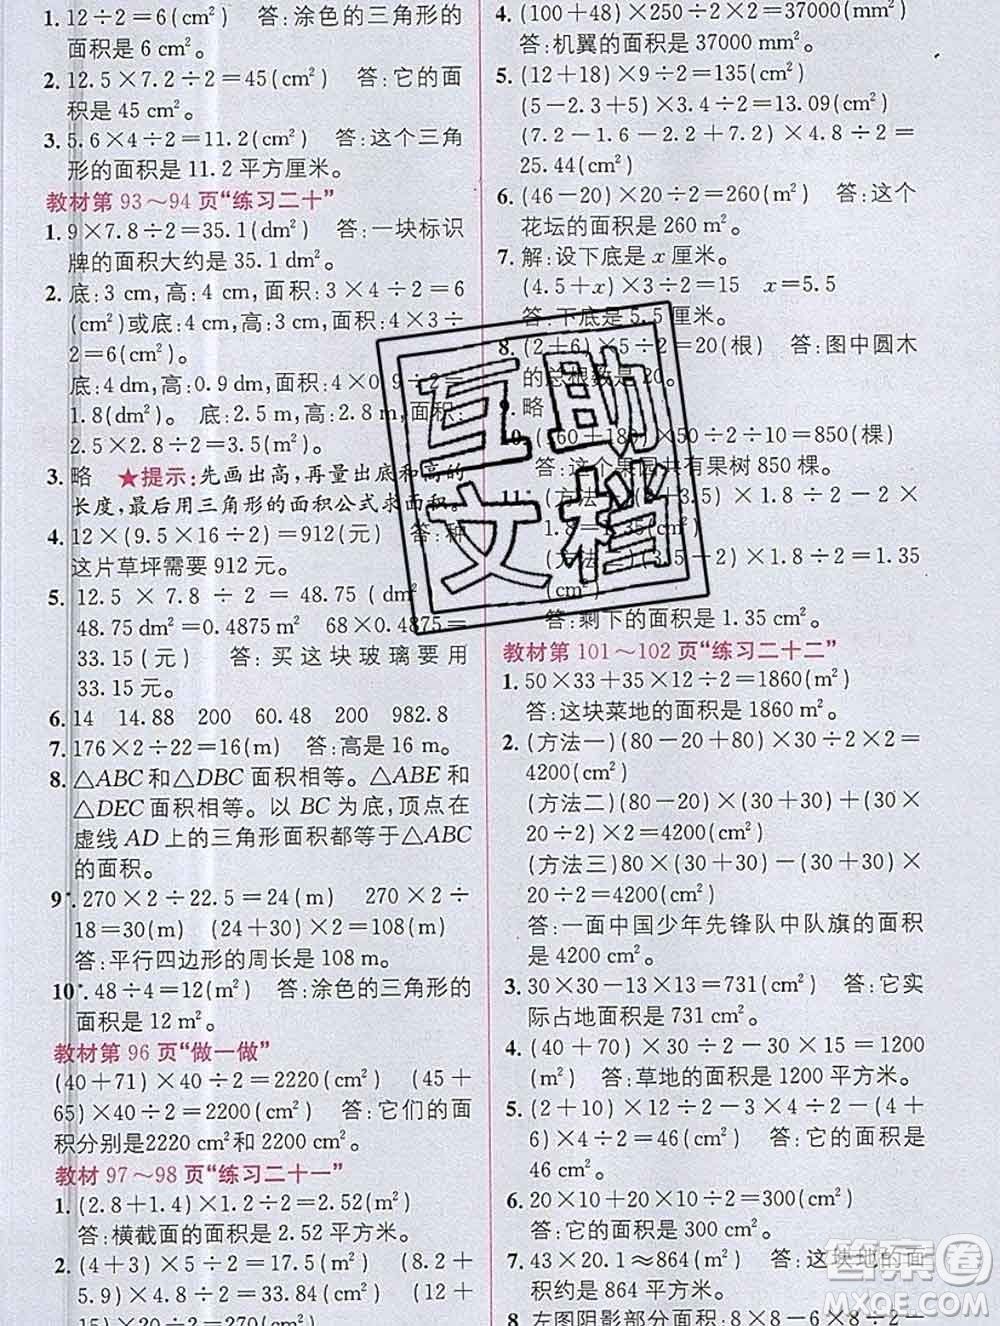 1. 12÷2=6(cm²) 答:涂色的三角形的
面积是 6 cm²。
2. 12.5×7.2÷2=45(cm²) 答:它的面
积是 45 cm²。
3. 5.6×4÷2=11.2(cm²) 答:这个三角
形的面积是 11.2 平方厘米。
教材第 93～94 页“练习二十”
1. 9×7.8÷2=35.1(dm²) 答:一块标识
牌的面积大约是 35.1 dm²。
2. 底:3 cm,高:4 cm,面积:3×4÷2=6
(cm²)或底:4 cm,高:3 cm,面积:4×3÷
2=6(cm²)
底:4 dm,高:0.9 dm,面积:4×0.9÷2=
1.8(dm²) 底:2.5 dm,高:2.8 m,面积:
2.5×2.8÷2=3.5(m²)
3. 略 ★提示:先画出高,再量出底和高的
长度,最后用三角形的面积公式求面积。
4. 12×(9.5×16÷2)=912(元) 答:种
这片草坪需要 912 元。
5. 12.5×7.8÷2=48.75(dm²)
48.75 dm²=0.4875 m² 68×0.4875=
33.15(元) 答:买这块玻璃要用
33.15 元。
6. 14 14.88 200 60.48 200 982.8
7. 176×2÷22=16(m) 答:高是 16 m。
8. △ABC和△DBC 面积相等。△ABE 和
△DEC 面积相等。以 BC 为底,顶点在
虚线 AD 上的三角形面积都等于△ABC
的面积。
9*. 270×2÷22.5=24(m) 270×2÷
18=30(m) (24+30)×2=108(m)
答:平行四边形的周长是 108 m。
10*. 48÷4=12(m²) 答:涂色的三角形的
面积是 12 m²。
教材第 96 页“做一做”
(40+71)×40÷2=2220(cm²) (45+
65)×40÷2=2200(cm²) 答:它们的面
积分别是2220 cm²和 2200 cm²。
教材 97～98 页“练习二十一”
1. (2.8+1.4)×1.2÷2=2.52(m²)
答:横截面的面积是 2.52 平方米。
2. (4+3)×4÷2=14(cm²) (8.2+
5.9)×12÷2=84.6(cm²) (2.5+
4. (100+48)×250÷2×2=37000(mm²)
答:机翼的面积是 37000 mm²。
5. (12+18)×9÷2=135(cm²)
(5-2.3+5)×3.4÷2=13.09(cm²)
(7.2-1.6-2.2+7.2)×4.8÷2=
25.44(cm²)
6. (46-20)×20÷2=260(m²) 答:这个
花坛的面积是 260 m²。
7. 解:设下底是 x 厘米。
(4.5+x)×3÷2=15 x=5.5
答:下底是 5.5 厘米。
8. (2+6)×5÷2=20(根) 答:图中圆木
的总根数是 20。
9. 略
10. (160+180)×50÷2÷10=850(棵)
答:这个果园共有果树 850 棵。
11*. (方法一)(2+3.5)×1.8÷2-2×
1.8=1.35(cm²)
(方法二)(3.5-2)×1.8÷2=1.35
(cm²)
答:剩下的面积是 1.35 cm²。
教材第 101～102 页“练习二十二”
1. 50×33+35×12÷2=1860(m²)
答:这块菜地的面积是 1860 m²。
2. (方法一)(80-20+80)×30÷2×2=
4200(cm²)
(方法二)(80-20)×(30+30)+(30×
20÷2)×2=4200(cm²)
(方法三)80×(30+30)-(30+30)×
20÷2=4200(cm²)
答:一面中国少年先锋队中队旗的面积
是 4200 cm²。
3. 30×30-13×13=731(cm²) 答:它实
际占地面积是 731 cm²。
4. (40+70)×30÷2-30×15=1200
(m²) 答:草地的面积是 1200 平方米。
5. (2+10)×12÷2-3×4÷2-(4+
6)×4÷2=46(cm²) 答:它的面积是
46 cm²。
6. 20×10+20×10÷2=300(cm²)
答:它的面积是 300 cm²。
7. 43×20.1≈864(m²) 答:这块地的面
积约是 864 平方米。
8. 左图阴影部分面积:8×8-6×8÷2-
互助
文档
答案圈
MXQE.COM